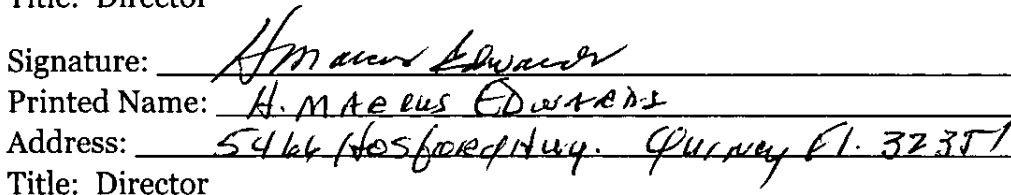 Title: Director
Signature: H Marcus Edwards
Printed Name: H. MARCUS EDWARDS
Address: 5466 Hosford Hwy. Quincy Fl. 32351
Title: Director